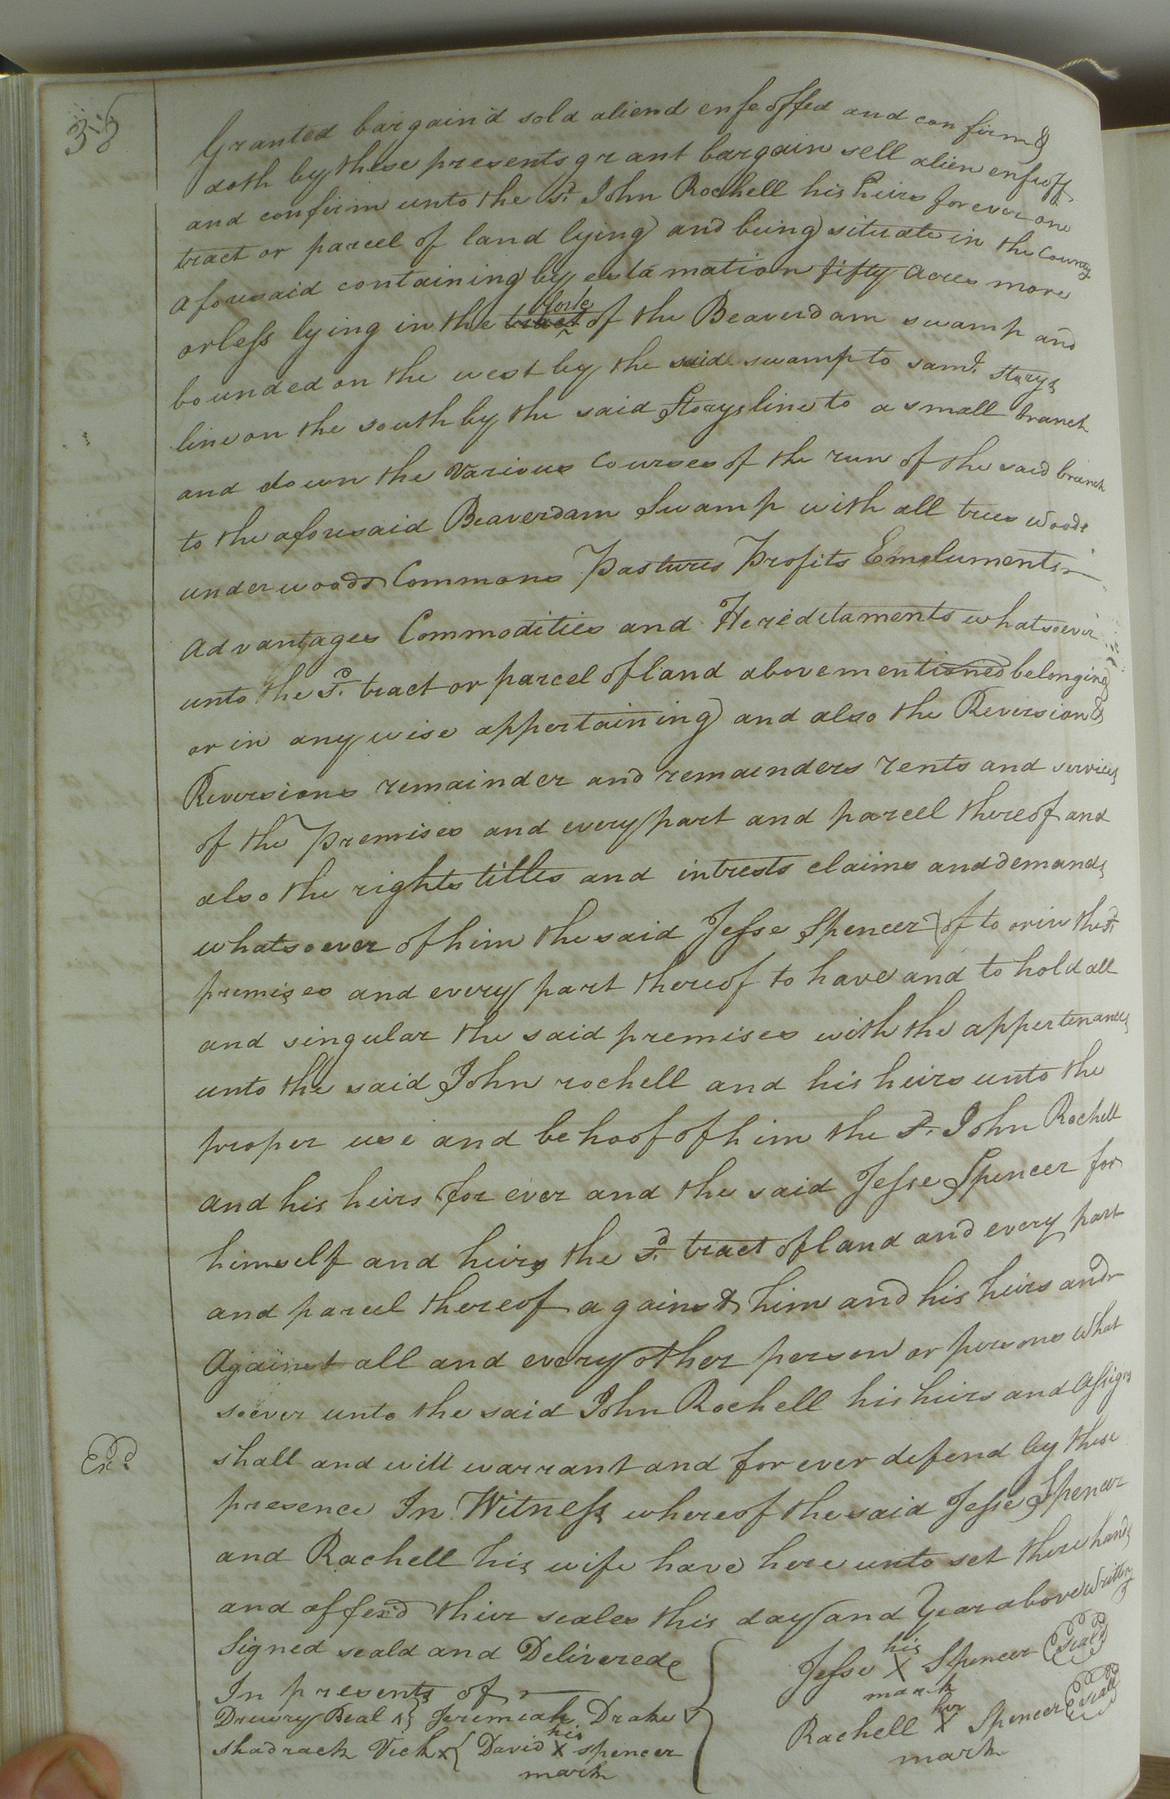 Granted bargain'd sold aliend enfeoffed and confirm'd
doth by these presents grant bargain sell alien enfeoff
and confirm unto the sd. John Rochell his heirs forever one
tract or parcel of land lying and being situate in the County
aforesaid containing by estamation fifty acres more
or less lying in the tract Norte of the Beaverdam swamp and
bounded on the west by the said swamp to Saml. Storys
line on the south by the said Storys line to a small branch
and down the various Courses of the run of the said branch
to the aforesaid Beaverdam Swamp with all trees woods
underwoods Commons Pastures Profits Emoluments
Advantages Commodities and Hereditaments whatsoever
unto the sd. tract or parcel of land abovementioned belonging
or in any wise appertaining and also the Reversion &
Reversions remainder and remainders rents and services
of the Premises and every part and parcell thereof and
also the rights titles and intrests claims and demands
whatsoever of him the said Jesse Spencer of to or in the sd.
premises and every part thereof to have and to hold all
and singular the said premises with the appertenances
unto the said John rochell and his heirs unto the
proper use and behoof of him the sd. John Rochell
and his heirs for ever and the said Jesse Spencer for
himself and heirs the sd. tract of land and every part
and parcel thereof against him and his heirs and
Against all and every other person or persons what
soever unto the said John Rochell his heirs and Assigns
shall and will warrant and for ever defend by these
Exd
presence In Witness whereof the said Jesse Spencer
and Rachell his wife have here unto set there hands
and affexd thier seales this day and Year above written
Signed seald and Delivered
In presents of
Jesse his X mark Spencer (seal)
Drewry Beal Jeremiah Drake
Rachell her X mark Spencer (seal)
Shadrack Vick x David his X mark Spencer